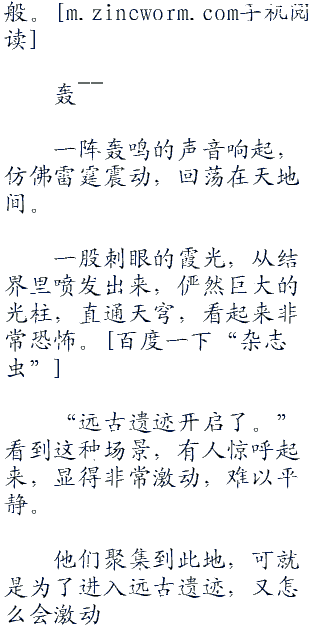 般。[m.zincworm.com手机阅
读]
轰――
一阵轰鸣的声音响起，
仿佛雷霆震动，回荡在天地
间。
一股刺眼的霞光，从结
界里喷发出来，俨然巨大的
光柱，直通天穹，看起来非
常恐怖。[百度一下“杂志
虫”]
“远古遗迹开启了。”
看到这种场景，有人惊呼起
来，显得非常激动，难以平
静。
他们聚集到此地，可就
是为了进入远古遗迹，又怎
么会激动